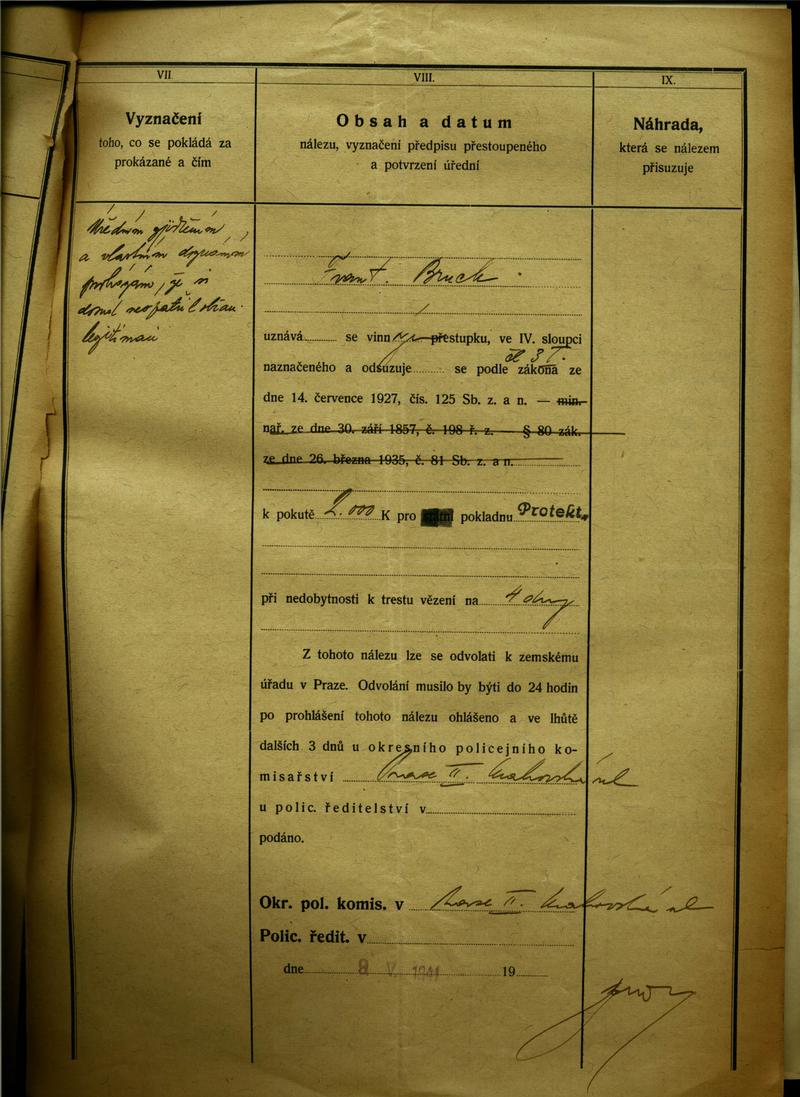 VII.
Vyznačení
toho, co se pokládá za
prokázané a čím
Úředním zjištěním
a vlastním doznáním
je si
legitimaci
VIII.
Obsah a datum
nálezu, vyznačení předpisu přestoupeného
a potvrzení úřední
Frant. Bruck
uznává se vinným přestupku, ve IV. sloupci
čl 3
naznačeného a odsuzuje se podle zákona ze
dne 14. července 1927, čís. 125 Sb. z. a n. — min.
nař. ze dne 30. září 1857, č. 198 ř. z. — § 80 zák.
ze dne 26. března 1935, č. 81 Sb. z. a n.
k pokutě 2.000 K pro pokladnu Protekt.
při nedobytnosti k trestu vězení na 4 dny
Z tohoto nálezu lze se odvolati k zemskému
úřadu v Praze. Odvolání musilo by býti do 24 hodin
po prohlášení tohoto nálezu ohlášeno a ve lhůtě
dalších 3 dnů u okresního policejního ko-
misařství Praze II. Krakovská ul
u polic. ředitelství v
podáno.
Okr. pol. komis. v Praze II. Krakovská ul
Polic. ředit. v
dne 8 V. 1941 19
IX.
Náhrada,
která se nálezem
přisuzuje